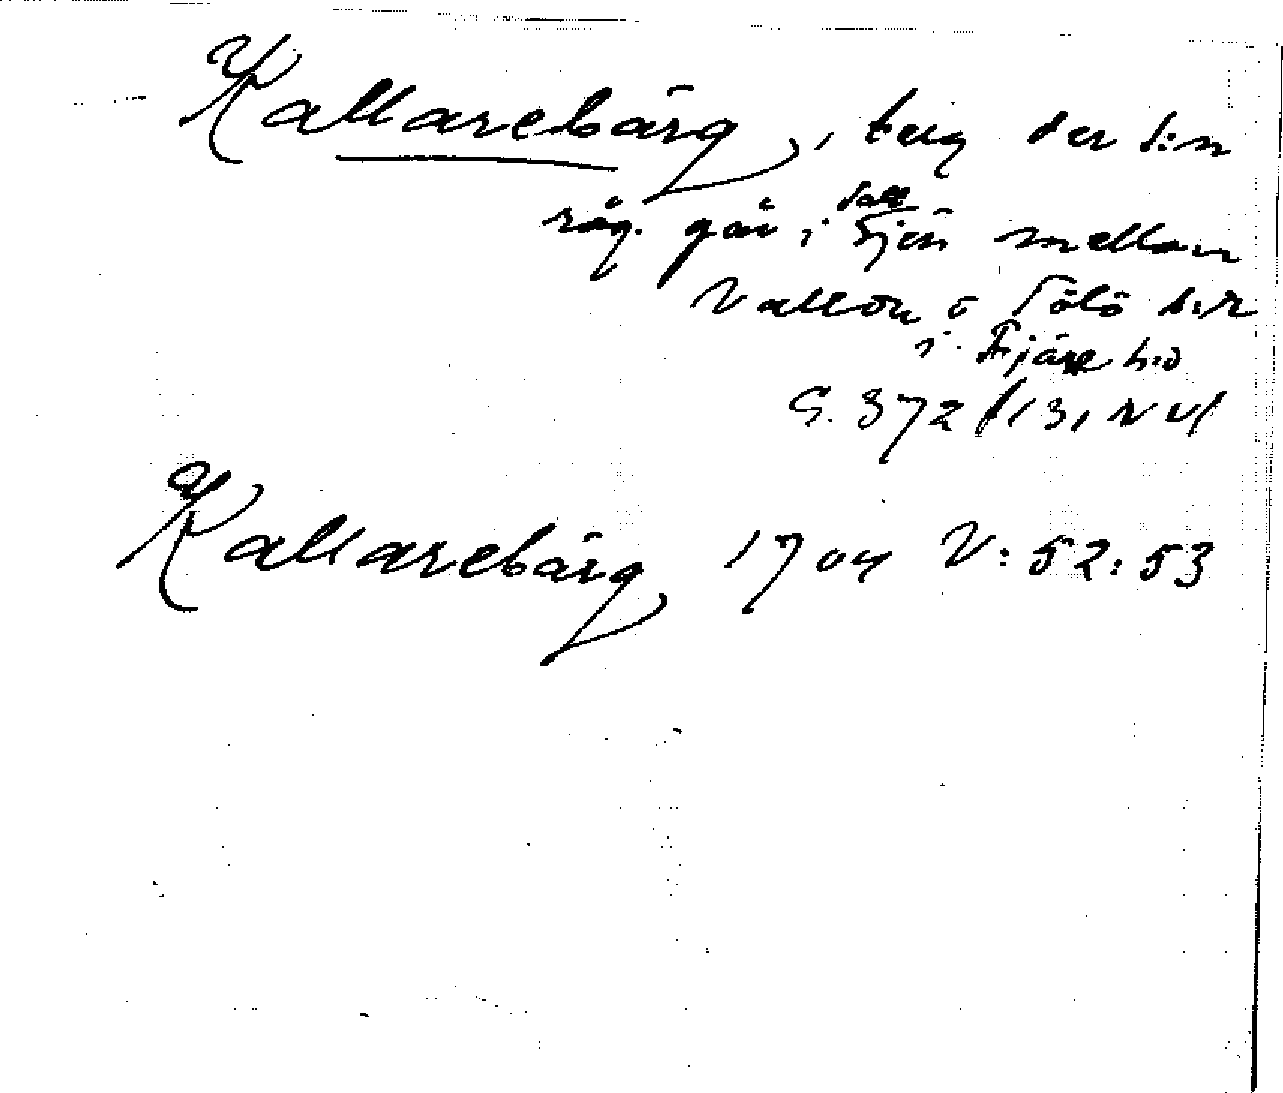 Kallarebärg, berg der s:n
råg. går i Salt Sjön mellan
Vallda o Sölö s:r
i Fjäre h:d
G. 372 (13, NV)
Kallarebärg 1704 V:52:53